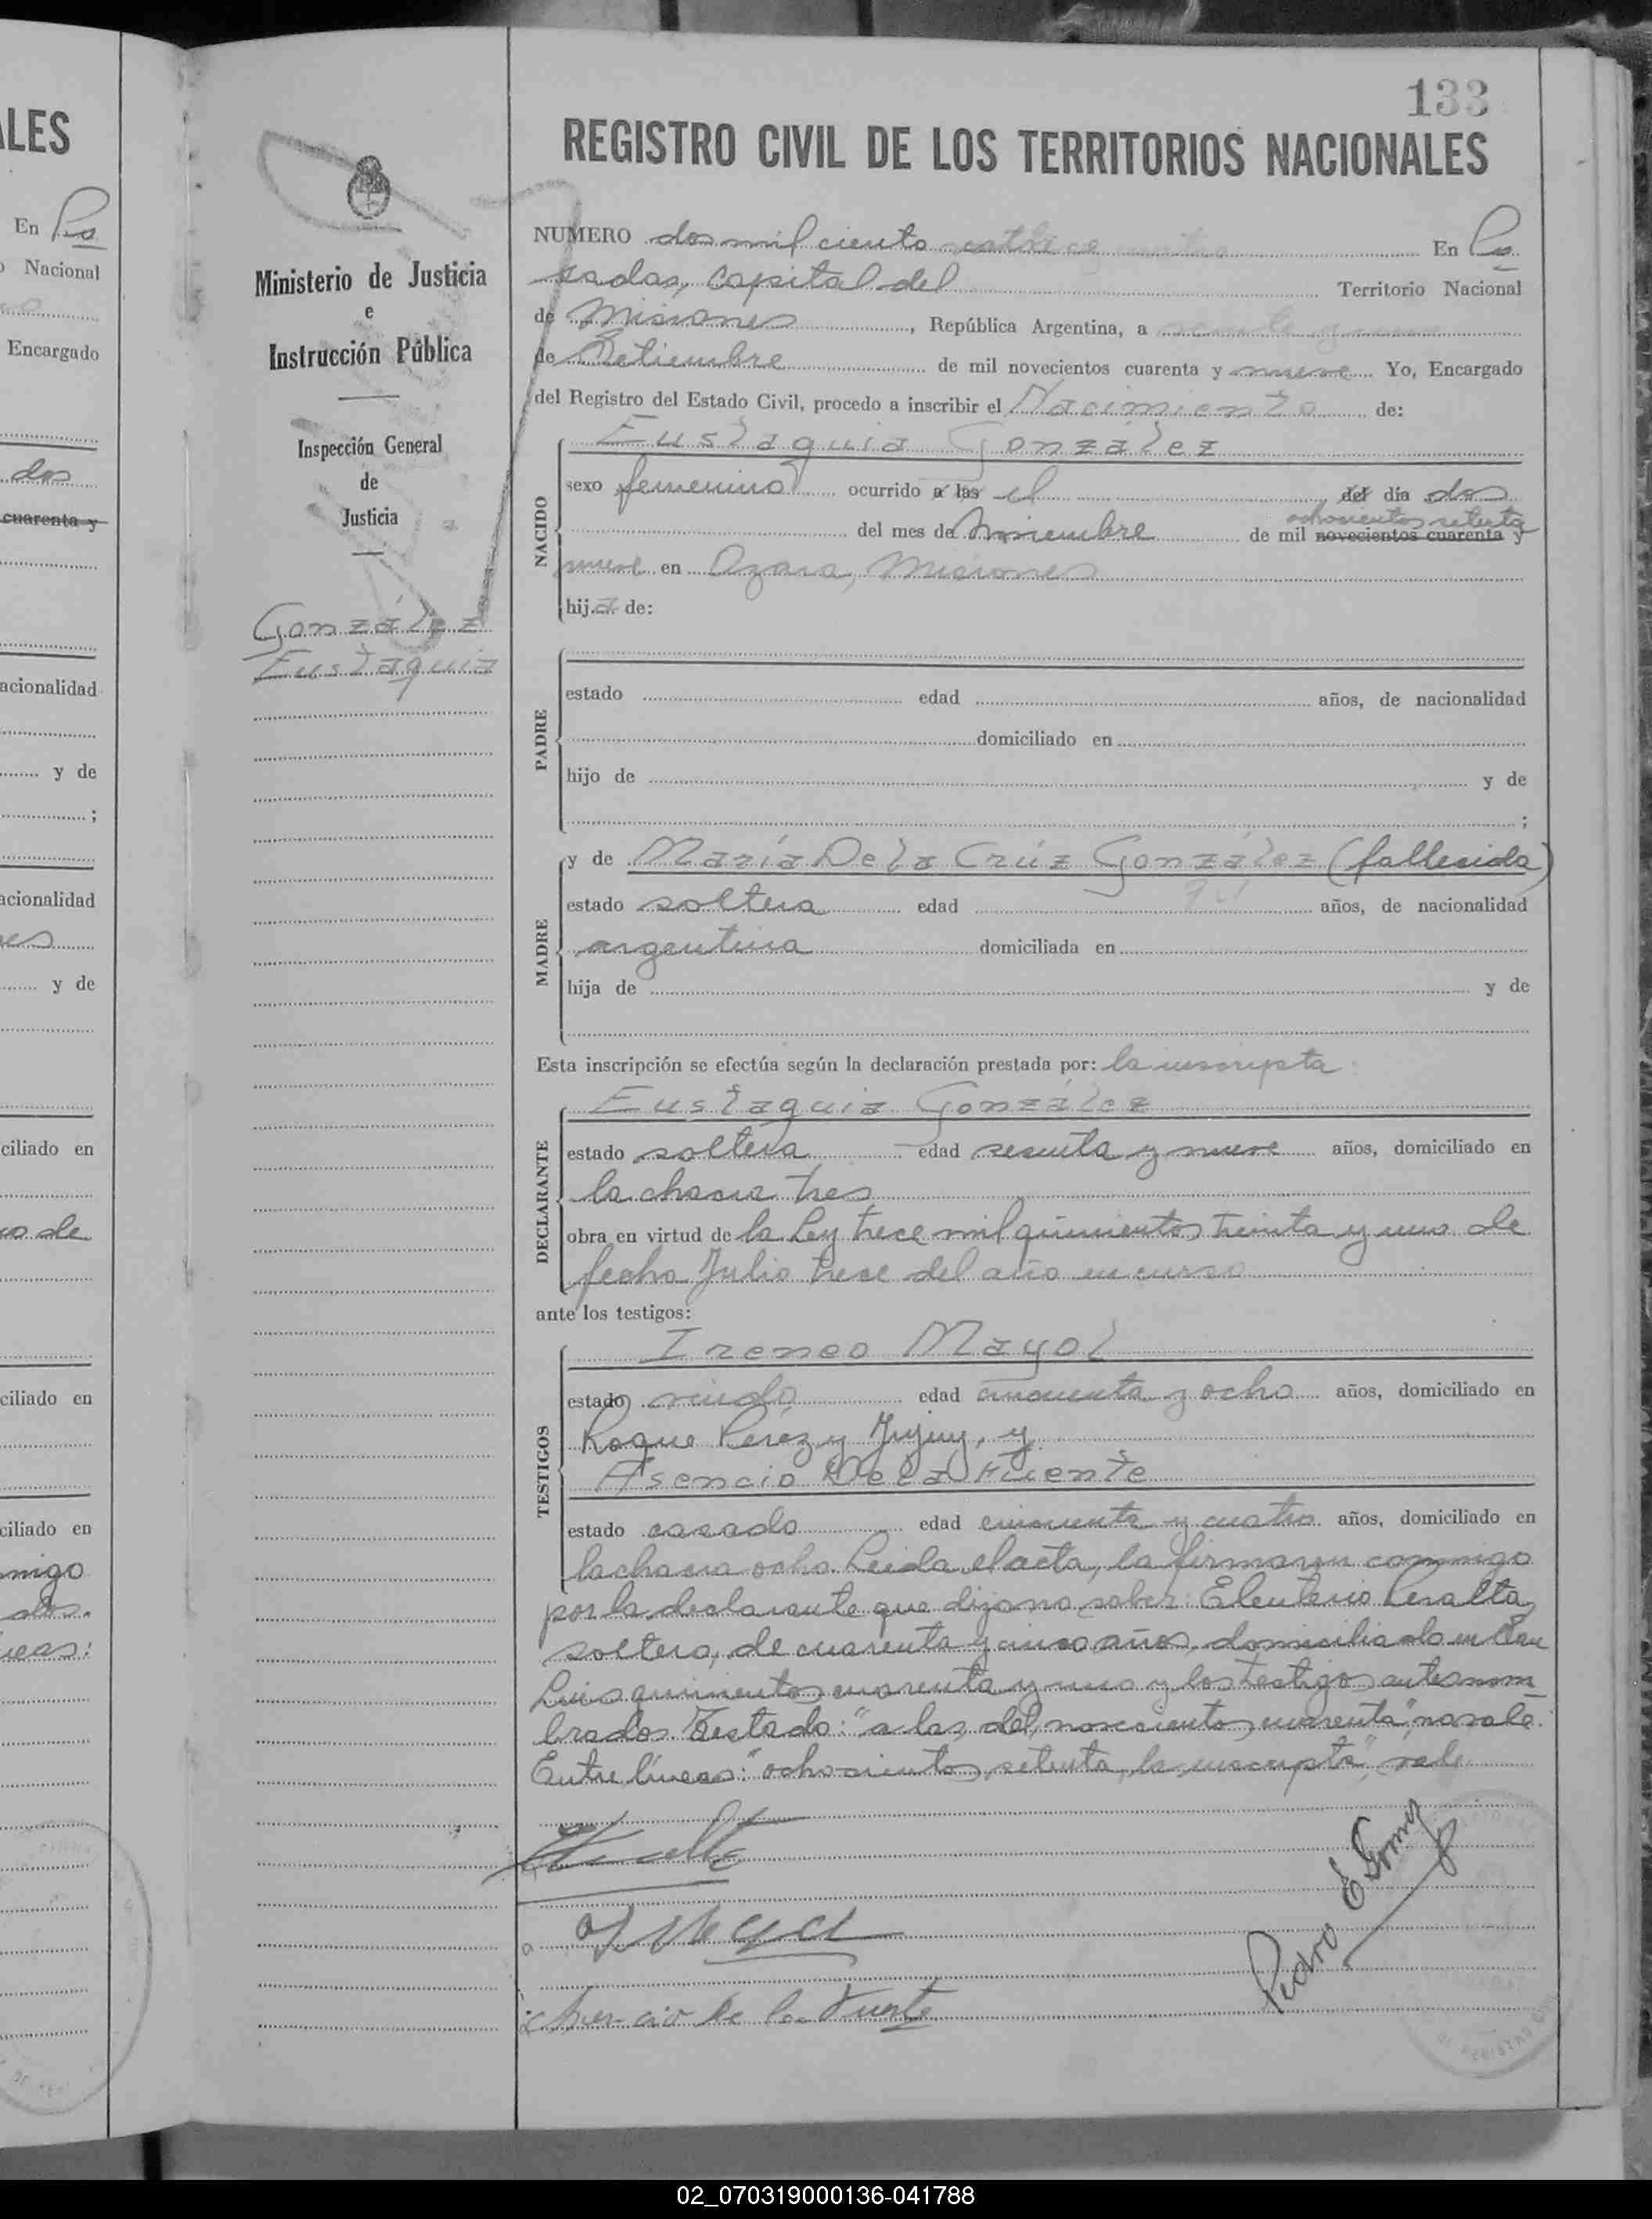 133
REGISTRO CIVIL DE LOS TERRITORIOS NACIONALES
NUMERO dos mil ciento En Po
sadas, capital del Territorio Nacional
de Misiones, República Argentina, a
de Setiembre de mil novecientos cuarenta y nueve Yo, Encargado
del Registro del Estado Civil, procedo a inscribir el Nacimiento de:
NACIDO
Eustaquia González
sexo femenino ocurrido a las el del día dos
ochocientos setenta
del mes de Noviembre de mil novecientos cuarenta y
nueve en Azara, Misiones
hija de:
PADRE
estado edad años, de nacionalidad
domiciliado en
hijo de y de
;
MADRE
y de María De la Crúz González (fallecida)
estado soltera edad años, de nacionalidad
argentina domiciliada en
hija de y de
Esta inscripción se efectúa según la declaración prestada por: la inscripta
DECLARANTE
Eustaquia González
estado soltera edad sesenta y nueve años, domiciliado en
la chacra tres
obra en virtud de la Ley trece mil quinientos treinta y uno de
fecha Julio trece del año en curso
ante los testigos:
TESTIGOS
Ireneo Mayol
estado viudo edad cincuenta y ocho años, domiciliado en
Roque Peréz y Jujuy, y
Asencio De la Fuente
estado casado edad cincuenta y cuatro años, domiciliado en
la chacra ocho. Leida el acta, la firmaron conmigo
por la declarante que dijo no saber: Eleuterio Peralta,
soltero, de cuarenta y cinco años, domiciliado en San
Luis quinientos cuarenta y uno y los testigos antenom
brados. Testado: "a las, del, novecientos, cuarenta", no vale.
Entre líneas: "ochocientos, setenta, la inscripta", vale
Asencio de la Fuente
Pedro E Gomez
Ministerio de Justicia
e
Instrucción Pública
Inspección General
de
Justicia
González
Eustaquia
ALES
En Po
Nacional
Encargado
dos
cuarenta y
acionalidad
y de
;
acionalidad
y de
ciliado en
de
ciliado en
ciliado en
migo
02_070319000136-041788